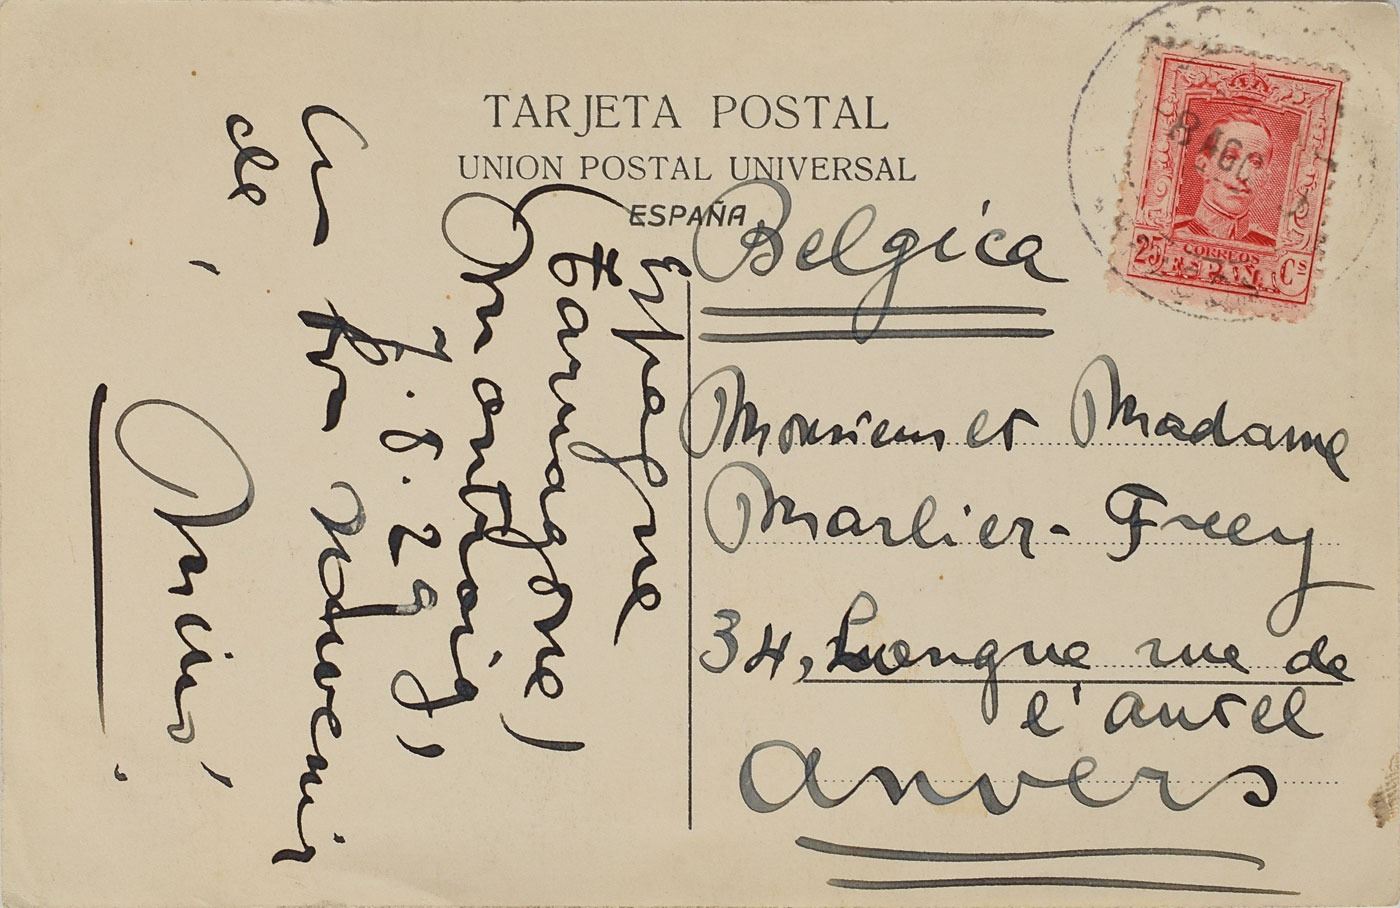 TARJETA POSTAL
UNION POSTAL UNIVERSAL
ESPAÑA
8 AGO
CORREOS
25 ESPAÑA Cs
Espagne
(Tarragone)
Montroig,
7.8.29,
Un bon souvenir
de
Miró.
Belgica
Monsieur et Madame
Marlier-Frey
34, Longue rue de
l'autel
Anvers